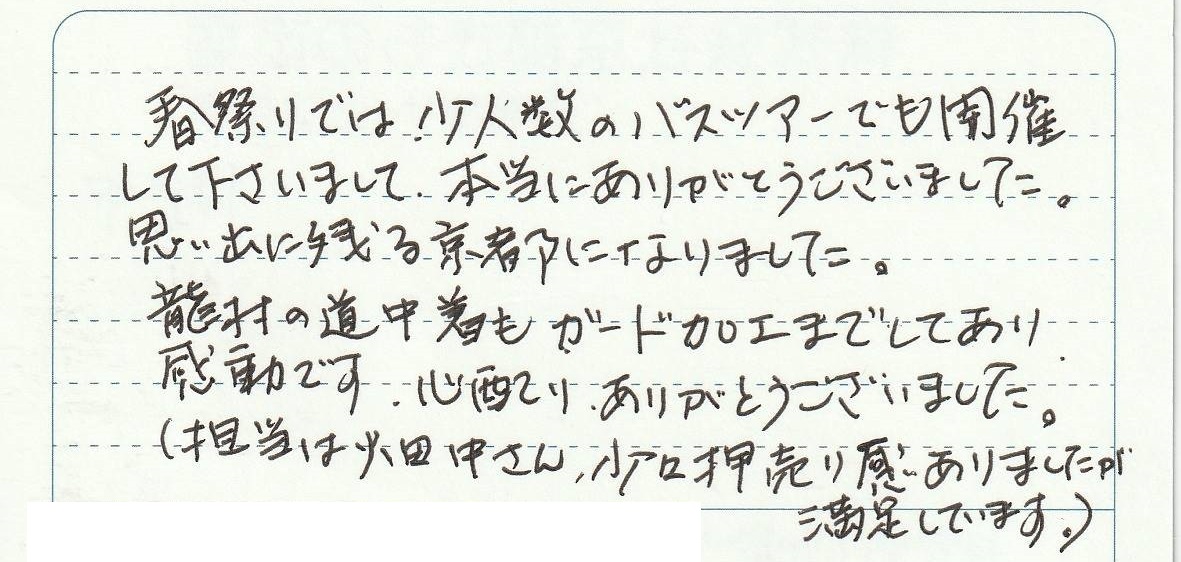 春祭りでは、少人数のバスツアーでも開催
して下さいまして、本当にありがとうございました。
思い出に残る京都になりました。
龍村の道中着もガード加工までしてあり、
感動です、心配り、ありがとうございました。
(担当は 田中さん、少々押売り感ありましたが
満足しています。)